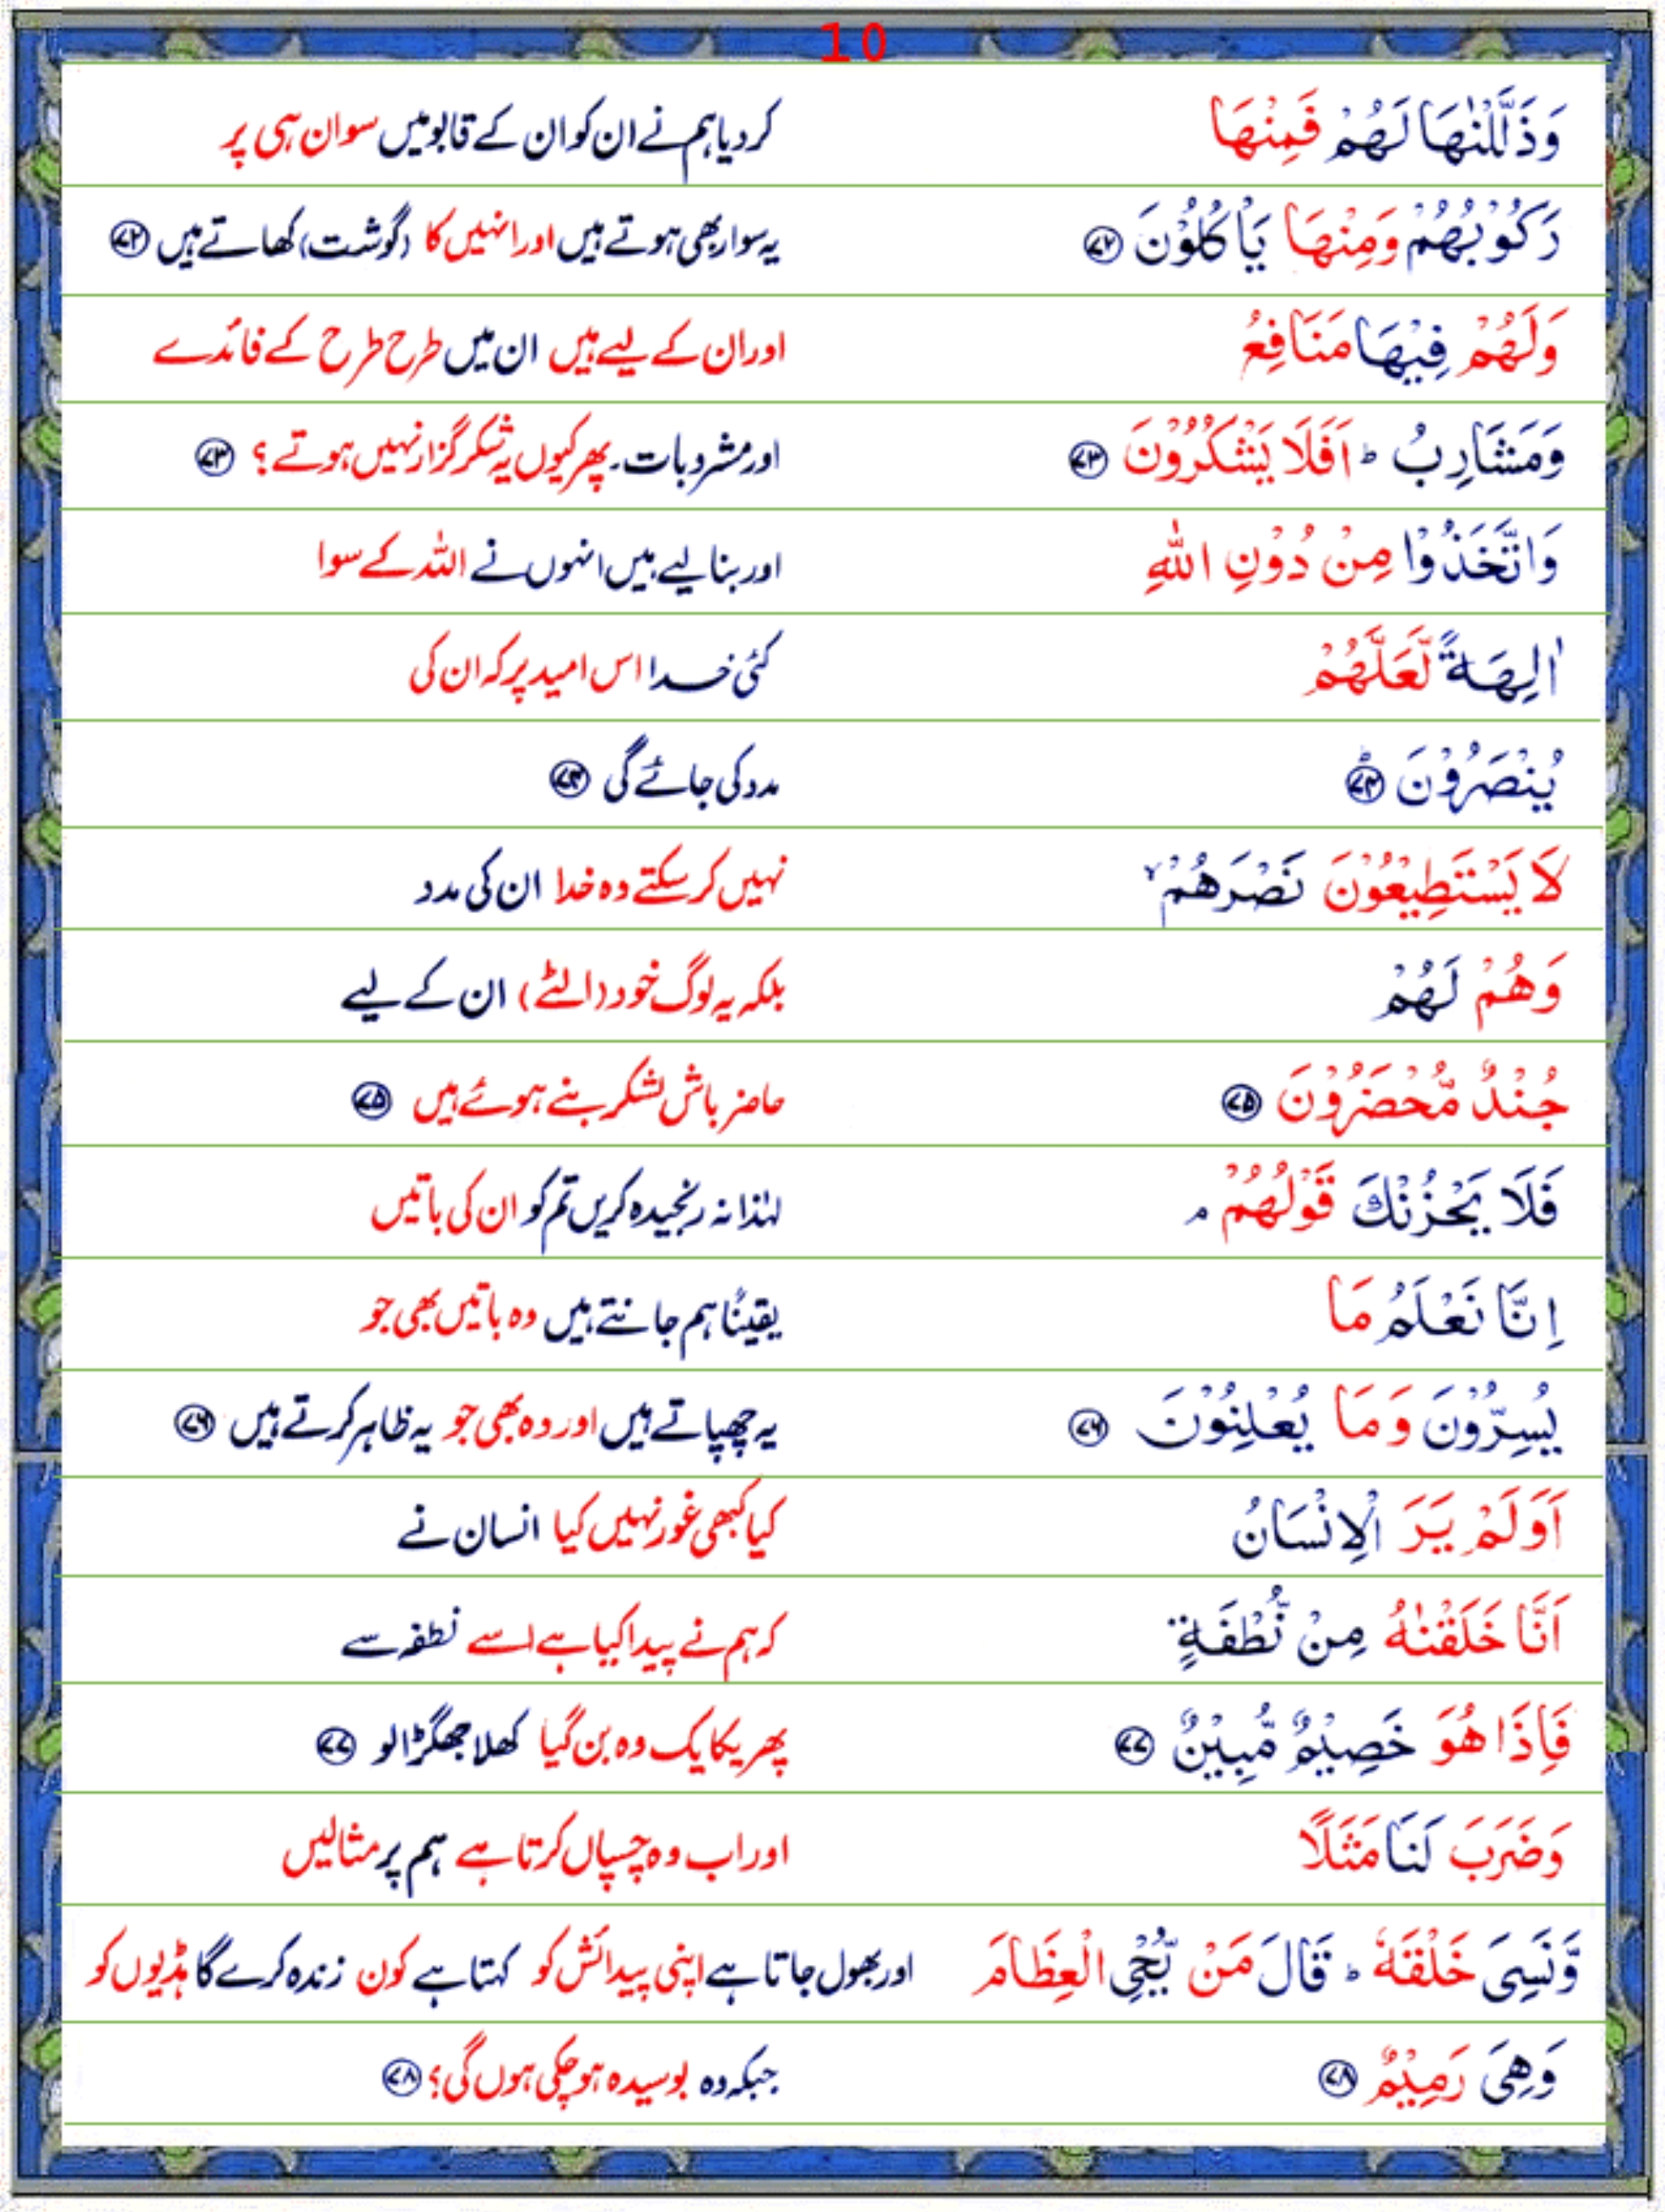 10
وَذَلَّلْنٰهَا لَهُمْ فَمِنْهَا کردیا ہم نے ان کو ان کے قابو میں سو ان ہی پر
رَكُوْبُهُمْ وَمِنْهَا يَاْكُلُوْنَ ۷۲ یہ سوار بھی ہوتے ہیں اور انہیں کا (گوشت) کھاتے ہیں ۷۲
وَلَهُمْ فِيْهَا مَنَافِعُ اور ان کے لیے ہیں ان میں طرح طرح کے فائدے
وَمَشَارِبُ ؕ اَفَلَا يَشْكُرُوْنَ ۷۳ اور مشروبات۔ پھر کیوں یہ شکر گزار نہیں ہوتے؟ ۷۳
وَاتَّخَذُوْا مِنْ دُوْنِ اللّٰهِ اور بنا لیے ہیں انہوں نے اللہ کے سوا
اٰلِهَةً لَّعَلَّهُمْ کئی خدا اس امید پر کہ ان کی
يُنْصَرُوْنَ ؕ ۷۴ مدد کی جائے گی ۷۴
لَا يَسْتَطِيْعُوْنَ نَصْرَهُمْ ۙ نہیں کر سکتے وہ خدا ان کی مدد
وَهُمْ لَهُمْ بلکہ یہ لوگ خود (الٹے) ان کے لیے
جُنْدٌ مُّحْضَرُوْنَ ۷۵ حاضر باش لشکر بنے ہوئے ہیں ۷۵
فَلَا يَحْزُنْكَ قَوْلُهُمْ ۘ لہٰذا نہ رنجیدہ کریں تم کو ان کی باتیں
اِنَّا نَعْلَمُ مَا یقینًا ہم جانتے ہیں وہ باتیں بھی جو
يُسِرُّوْنَ وَمَا يُعْلِنُوْنَ ۷۶ یہ چھپاتے ہیں اور وہ بھی جو یہ ظاہر کرتے ہیں ۷۶
اَوَلَمْ يَرَ الْاِنْسَانُ کیا کبھی غور نہیں کیا انسان نے
اَنَّا خَلَقْنٰهُ مِنْ نُّطْفَةٍ کہ ہم نے پیدا کیا ہے اسے نطفہ سے
فَاِذَا هُوَ خَصِيْمٌ مُّبِيْنٌ ۷۷ پھر یکایک وہ بن گیا کھلا جھگڑالو ۷۷
وَضَرَبَ لَنَا مَثَلًا اور اب وہ چسپاں کرتا ہے ہم پر مثالیں
وَّنَسِىَ خَلْقَهٗ ؕ قَالَ مَنْ يُّحْىِ الْعِظَامَ اور بھول جاتا ہے اپنی پیدائش کو کہتا ہے کون زندہ کرے گا ہڈیوں کو
وَهِىَ رَمِيْمٌ ۷۸ جبکہ وہ بوسیدہ ہو چکی ہوں گی؟ ۷۸